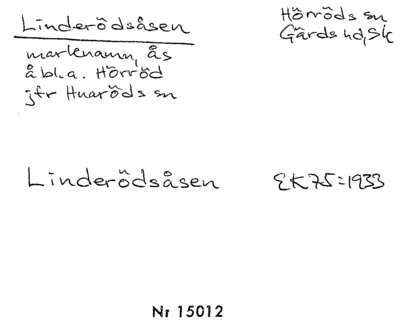 Linderödsåsen
Hörröds sn
Gärds hd, Sk
marknamn, ås
å bl.a. Hörröd
jfr Huaröds sn
Linderödsåsen EK75=1933
Nr 15012